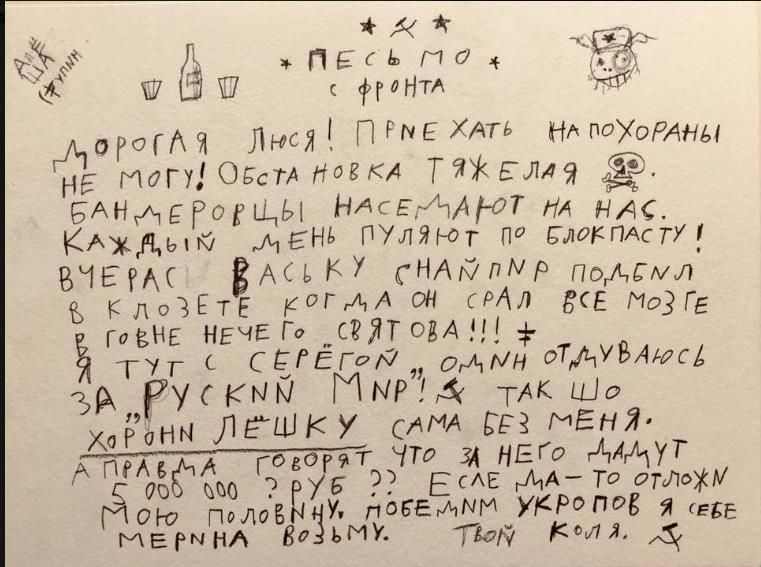 АЛЁ
ША
СТУПИН
ПЕСЬМО
С ФРОНТА
ДОРОГАЯ ЛЮСЯ! ПРИЕХАТЬ НА ПОХОРАНЫ
НЕ МОГУ! ОБСТАНОВКА ТЯЖЕЛАЯ.
БАНДЕРОВЦЫ НАСЕДАЮТ НА НАС.
КАЖДЫЙ ДЕНЬ ПУЛЯЮТ ПО БЛОКПАСТУ!
ВЧЕРАСЬ ВАСЬКУ СНАЙПИР ПОДБИЛ
В КЛОЗЕТЕ КОГДА ОН СРАЛ ВСЕ МОЗГЕ
В ГОВНЕ НЕЧЕГО СВЯТОВА!!!
Я ТУТ С СЕРЁГОЙ,, ОДИН ОТДУВАЮСЬ
ЗА „РУСКИЙ МИР"! ТАК ШО
ХОРОНИ ЛЁШКУ САМА БЕЗ МЕНЯ.
А ПРАВДА ГОВОРЯТ ЧТО ЗА НЕГО ДАДУТ
5 000 000 ? РУБ ?? ЕСЛЕ ДА – ТО ОТЛОЖИ
МОЮ ПОЛОВИНУ. ПОБЕДИМ УКРОПОВ Я СЕБЕ
МЕРИНА ВОЗЬМУ. ТВОЙ КОЛЯ.